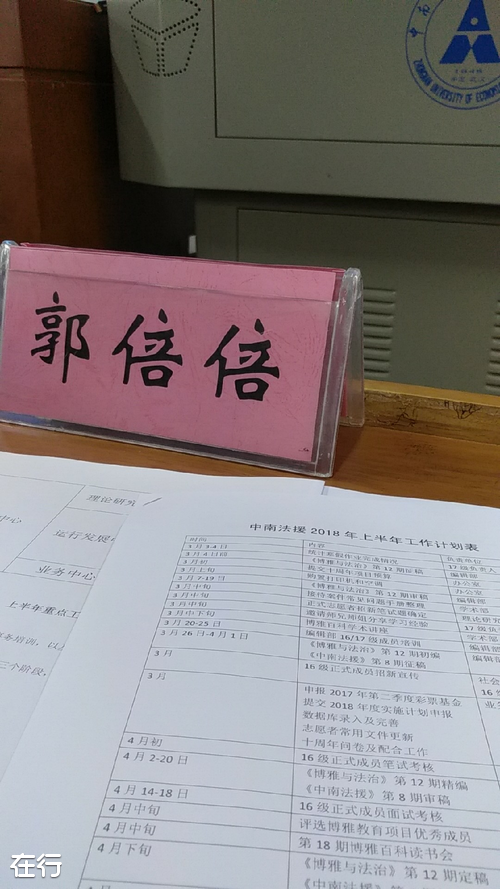 中南
ZHONGNAN UNIVERSITY OF ECONOM
郭倍倍
理论研究
中心
运行发展
业务中心
上半年重点工
务培训，以
三个阶段，
中南法援 2018 年上半年工作计划表
时间 内容 负责单位
3 月 3-4 日 统计寒假作业完成情况 17 级负责人
3 月 4 日前 《博雅与法治》第 12 期征稿 编辑部
3 月初 提交十周年项目预算 办公室
3 月上旬 购置打印机和空调 办公室
3 月 7-19 日 接待案件常见问题手册整理 学术部
3 月中旬 正式志愿者和新笔试题确定 学术部
3 月中旬 邀请师兄师姐分享学习经验 理论研究
3 月中下旬 博雅百科学术讲座 17 级负
3 月 20-25 日 编辑部 16/17 级成员培训 学术部
3 月 26 日-4 月 1 日 《博雅与法治》第 12 期初编 编辑部
《中南法援》第 8 期征稿 编辑部
3 月 16 级正式成员招新宣传
社会
3 月 申报 2017 年第二季度彩票基金 16
提交 2018 年度实施计划申报 业务
数据库录入及完善
志愿者常用文件更新
十周年问卷及配合工作
4 月初 16 级正式成员笔试考核
4 月 2-20 日 《博雅与法治》第 12 期精编
《中南法援》第 8 期审稿
4 月 14-18 日 16 级正式成员面试考核
4 月中旬 评选博雅教育项目优秀成员
4 月中旬 第 18 期博雅百科读书会
4 月下旬 《博雅与法治》第 12 期定稿
《中南法援》第
在行